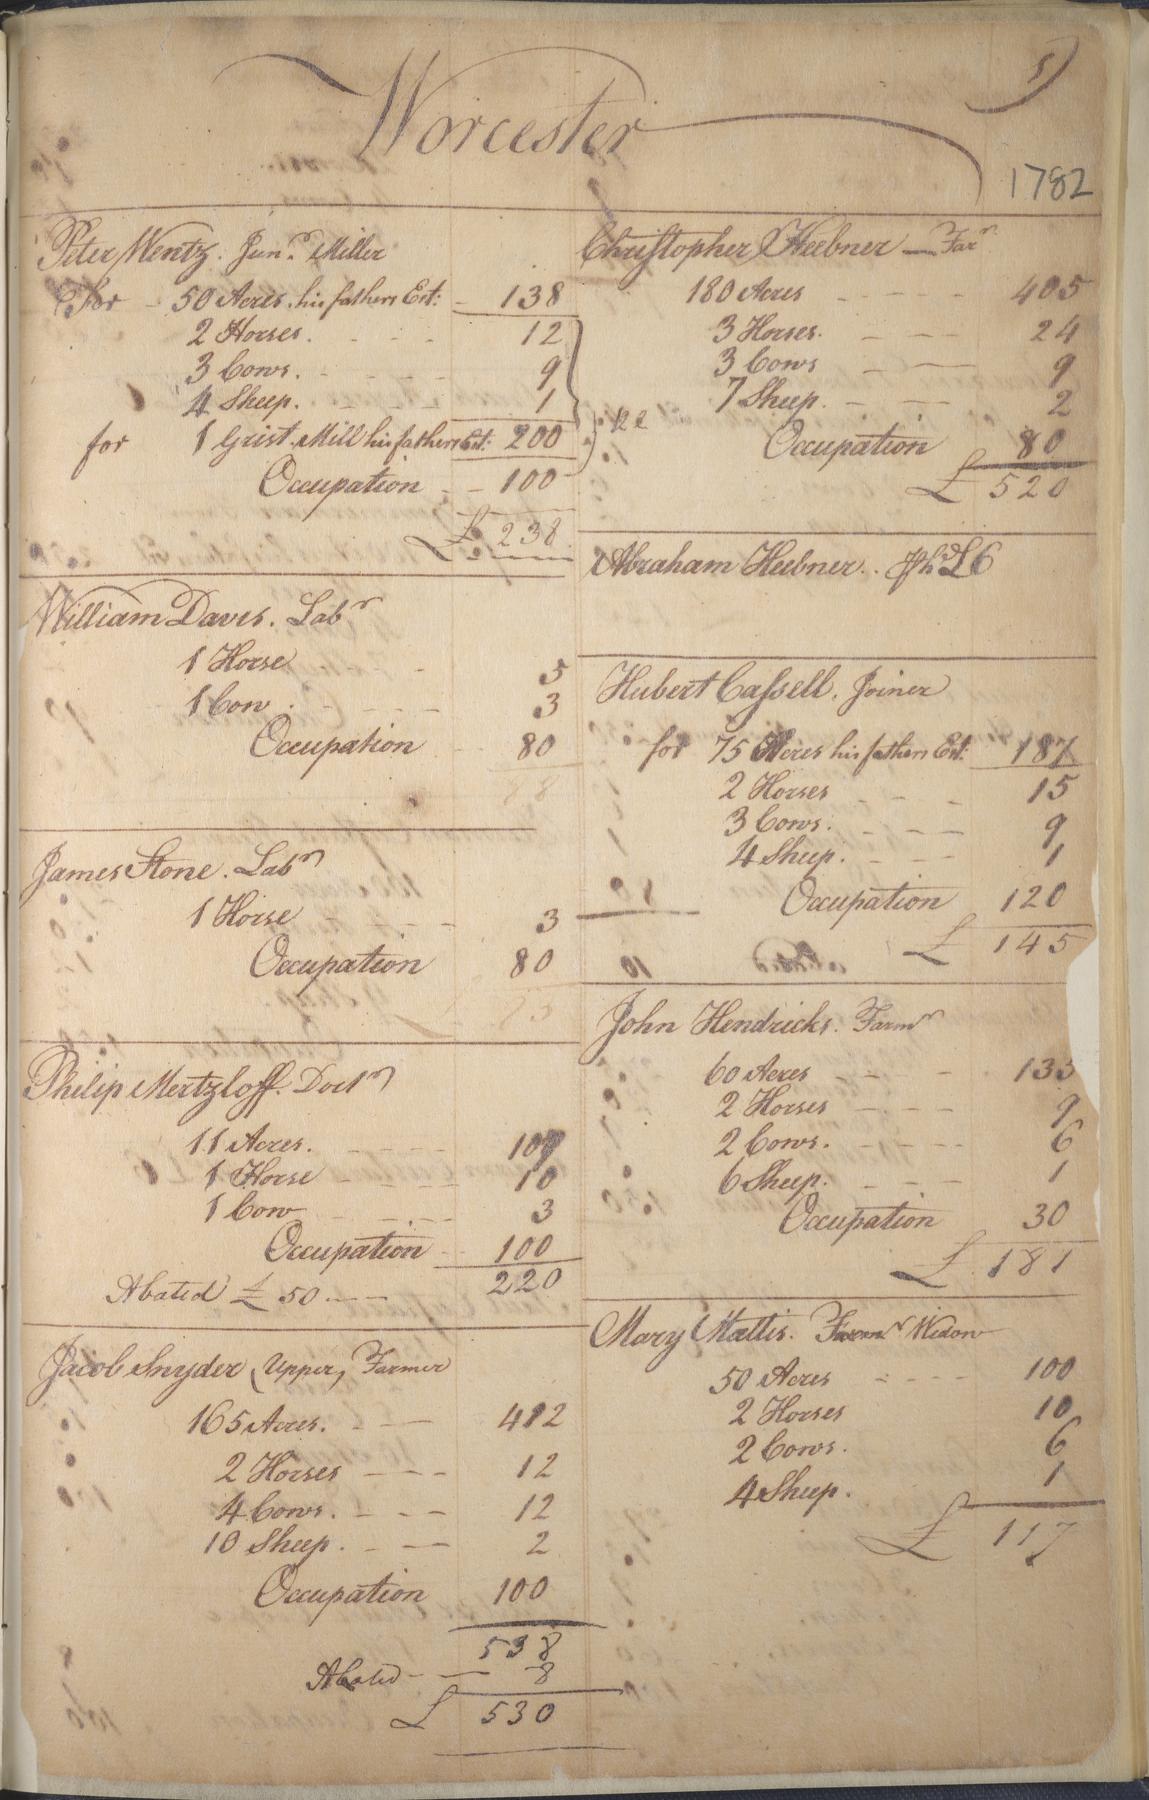 5)
Worcester
1782
Peter Wentz. Junr. Miller
for - 50 Acres. his fathers Est: - 138
2 Horses. 12
3 Cows. 9
4 Sheep. 1
for 1 Grist Mill his fathers Est: 200
Occupation 100
£ 238
William Davis. Labr
1 Horse 5
1 Cow 3
Occupation 80
88
James Stone. Labr
1 Horse 3
Occupation 80
Philip Mertzloff. Doctr
11 Acres. 107
1 Horse 10
1 Cow 3
Occupation 100
220
Abated £ 50
Jacob Snyder (Upper) Farmer
165 Acres. 412
2 Horses 12
4 Cows. 12
10 Sheep. 2
Occupation 100
538
Abated 8
£ 530
Christopher Heebner Farr
180 Acres 405
3 Horses. 24
3 Cows 9
7 Sheep. 2
Occupation 80
£ 520
Abraham Heebner. £6
Hubert Cassell. Joiner
for 75 Acres his fathers Est: 187
2 Horses 15
3 Cows. 9
4 Sheep. 1
Occupation 120
£ 145
John Hendricks. Farmr
60 Acres 135
2 Horses 9
2 Cows. 6
6 Sheep. 1
Occupation 30
£ 181
Mary Mattis. Widow
50 Acres 100
2 Horses 10
2 Cows. 6
4 Sheep. 1
£ 117